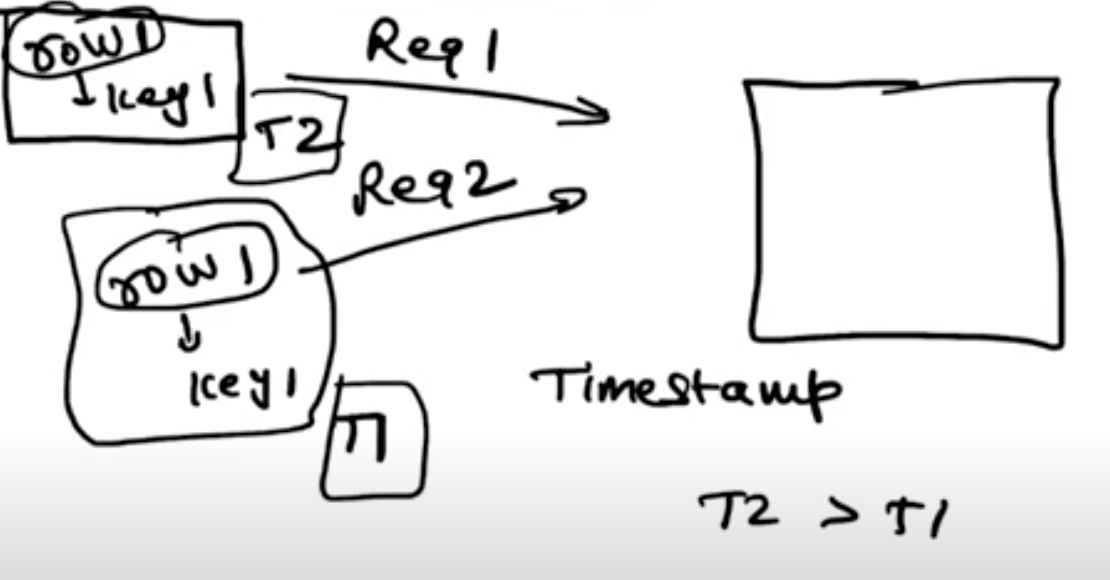 row1
key1
Req1
T2
Req2
row1
key1
T1
Timestamp
T2 > T1